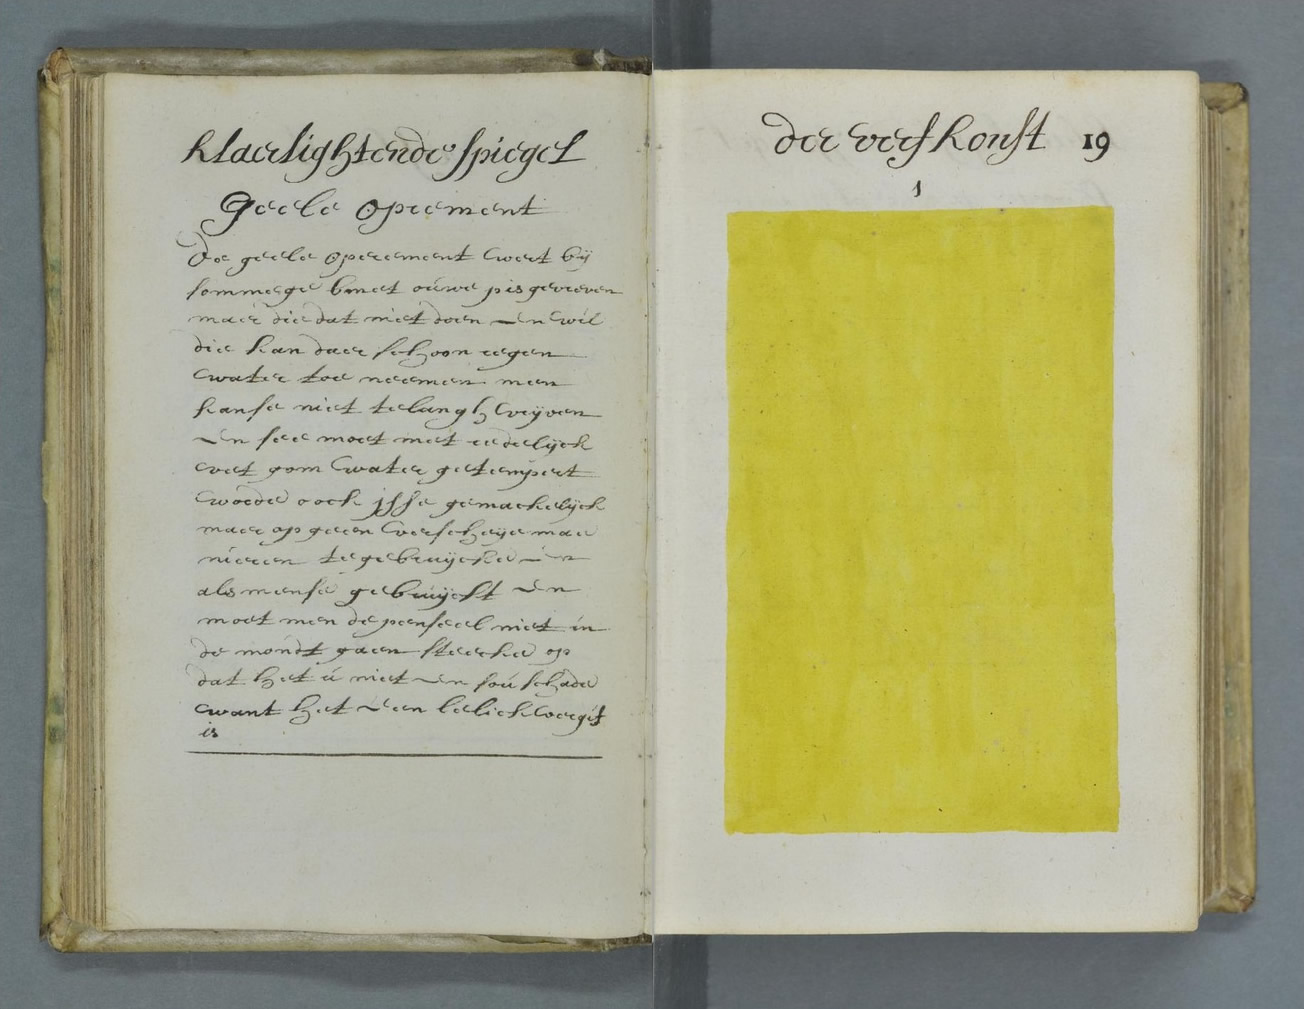 klaerlightende spiegel
geele oprement
De geele operement wert bij
sommege met ouwe pis gevreven
maer die dat niet doen en wil
die kan daer schoon regen
water toe neemen men
kanse niet te langh vrijven
en see moet met redelijck
vet gom water getempert
worde oock isse gemackelijck
maer op geen verscheije ma
nieren te gebruijcke en
als mense gebruijckt en
moet men de penseel niet in
de mondt gaen steecke op
dat het u niet en sou schade
want het een lelick vergif
is
der verfkonst 19
1